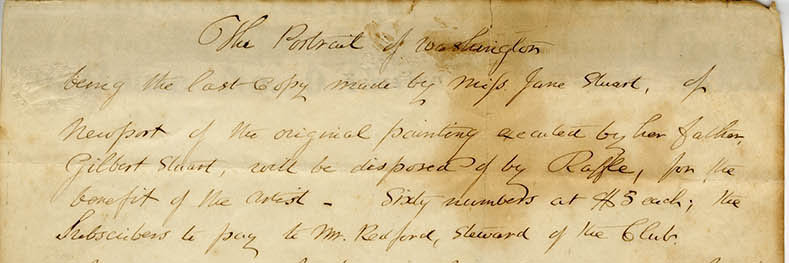 The Portrait of Washington
being the last Copy made by Miss Jane Stuart, of
Newport of the original painting executed by her father,
Gilbert Stuart, will be disposed of by Raffle, for the
benefit of the artist - Sixty numbers at $5 each; the
Subscribers to pay to Mr. Redford, Steward of the Club.